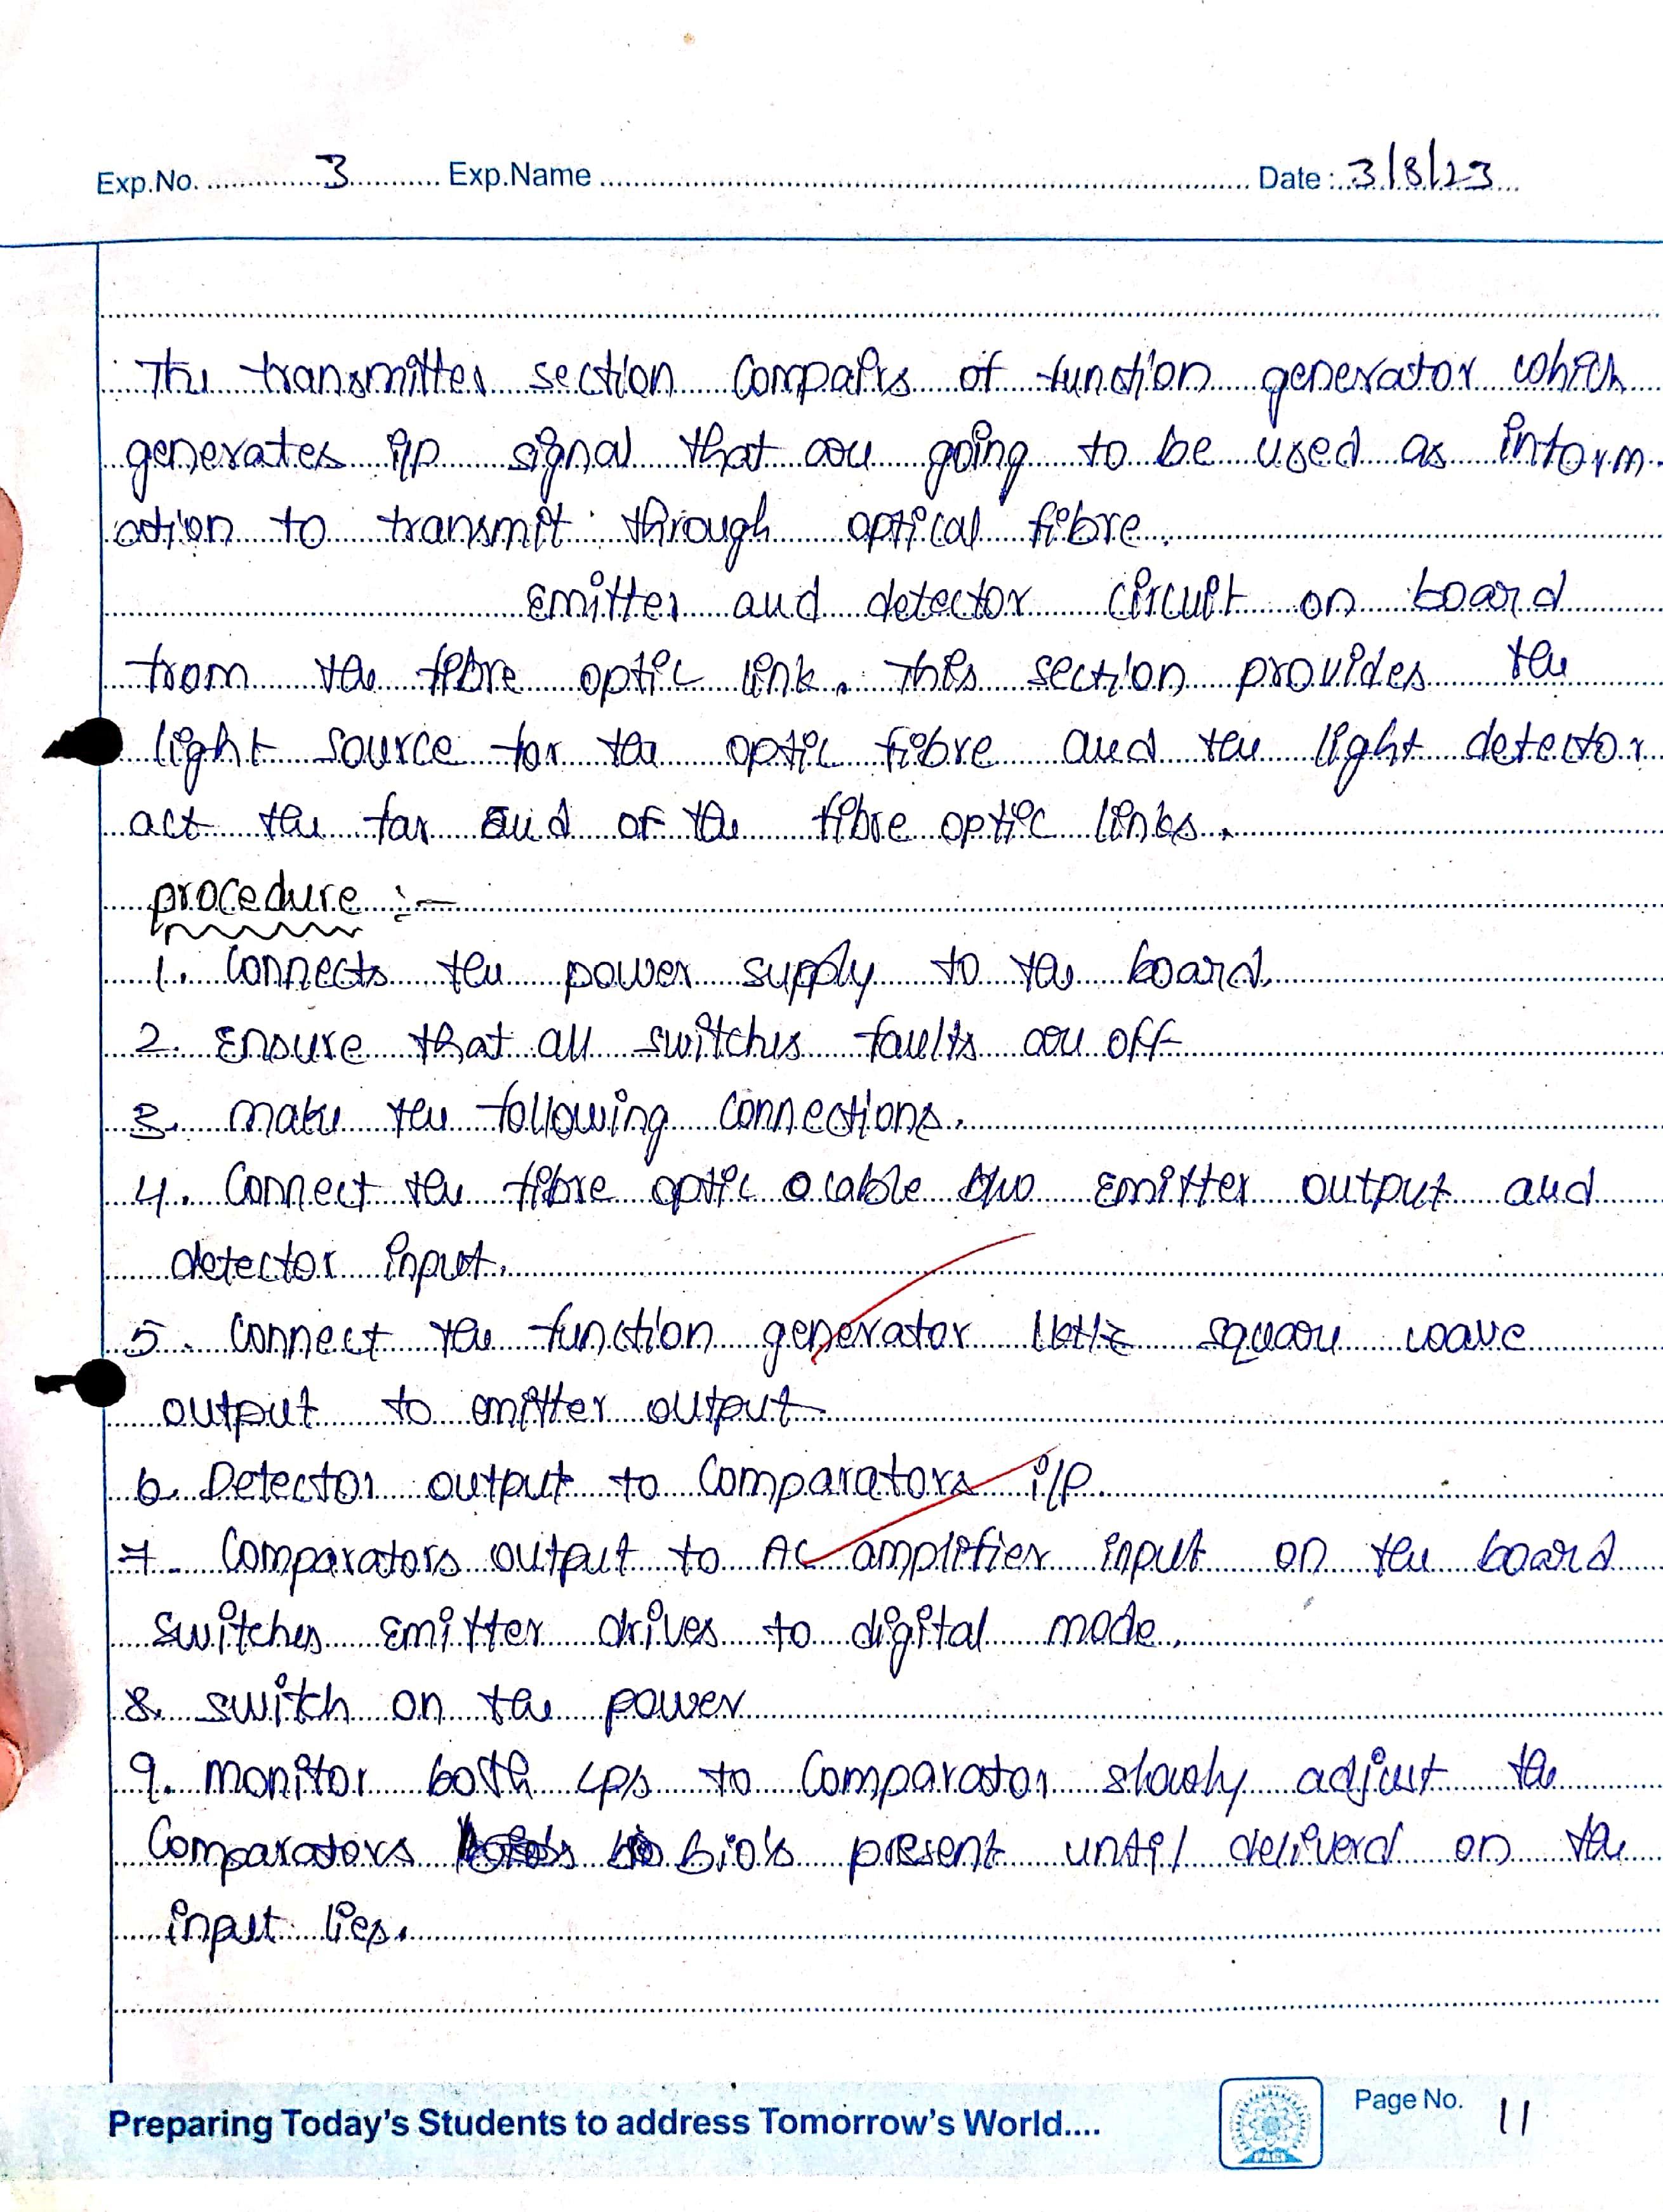 Exp.No. 3 Exp.Name Date : 3/8/23
The transmitter section compairs of function generator which
generates i/p signal that are going to be used as inform
ation to transmit through optical fibre.
Emitter and detector circuit on board
from the fibre optic link. This section provides the
light source for the optic fibre and the light detector
act the far end of the fibre optic links.
procedure :-
1. Connects the power supply to the board.
2. Ensure that all switches faults are off
3. make the following connections.
4. Connect the fibre optic cable b/w emitter output and
detector input.
5. Connect the function generator 1kHz square wave
output to emitter output
6. Detector output to comparators i/p
7. Comparators output to AC amplifier input on the board
switches emitter drives to digital mode.
8. switch on the power
9. monitor both to comparator slowly adjust the
Comparators bio's present until deliverd on the
input lies.
Preparing Today's Students to address Tomorrow's World....
PACE
Page No. 11